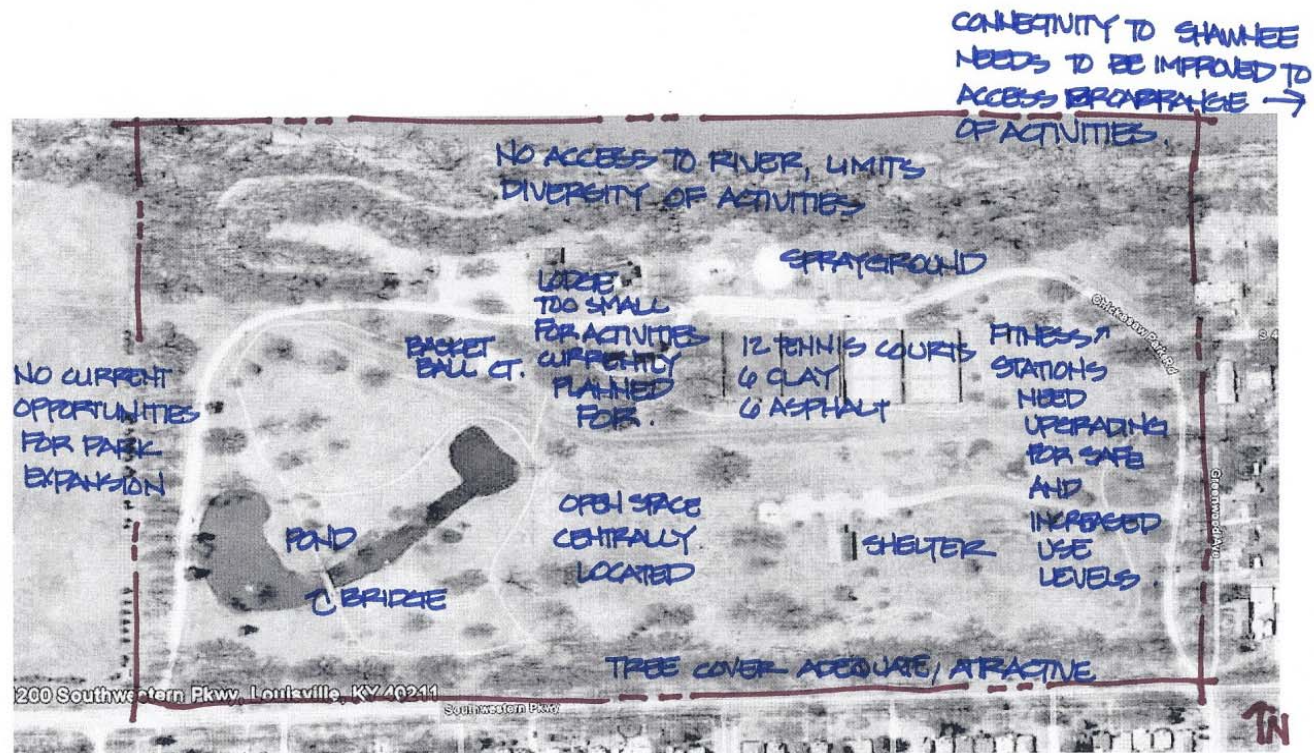 CONNECTIVITY TO SHAWNEE
NEEDS TO BE IMPROVED TO
ACCESS BROAD RANGE →
OF ACTIVITIES.
NO ACCESS TO RIVER, LIMITS
DIVERSITY OF ACTIVITIES
SPRAYGROUND
LODGE
TOO SMALL
FOR ACTIVITIES
CURRENTLY
PLANNED
FOR.
BASKET
BALL CT.
12 TENNIS COURTS
6 CLAY
6 ASPHALT
FITNESS ↗
STATIONS
NEED
UPGRADING
FOR SAFE
AND
INCREASED
USE
LEVELS.
Chickasaw Park Rd
NO CURRENT
OPPORTUNITIES
FOR PARK
EXPANSION
POND
BRIDGE
OPEN SPACE
CENTRALLY
LOCATED
SHELTER
Greenwood Ave
TREE COVER ADEQUATE, ATTRACTIVE
1200 Southwestern Pkwy, Louisville, KY 40211
Southwestern Pkwy
N